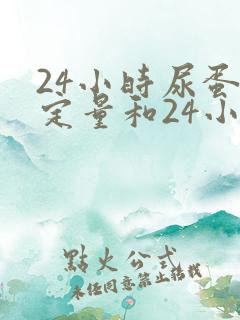 24小時尿蛋
定量和24小
點火公式
未經同意禁止轉載